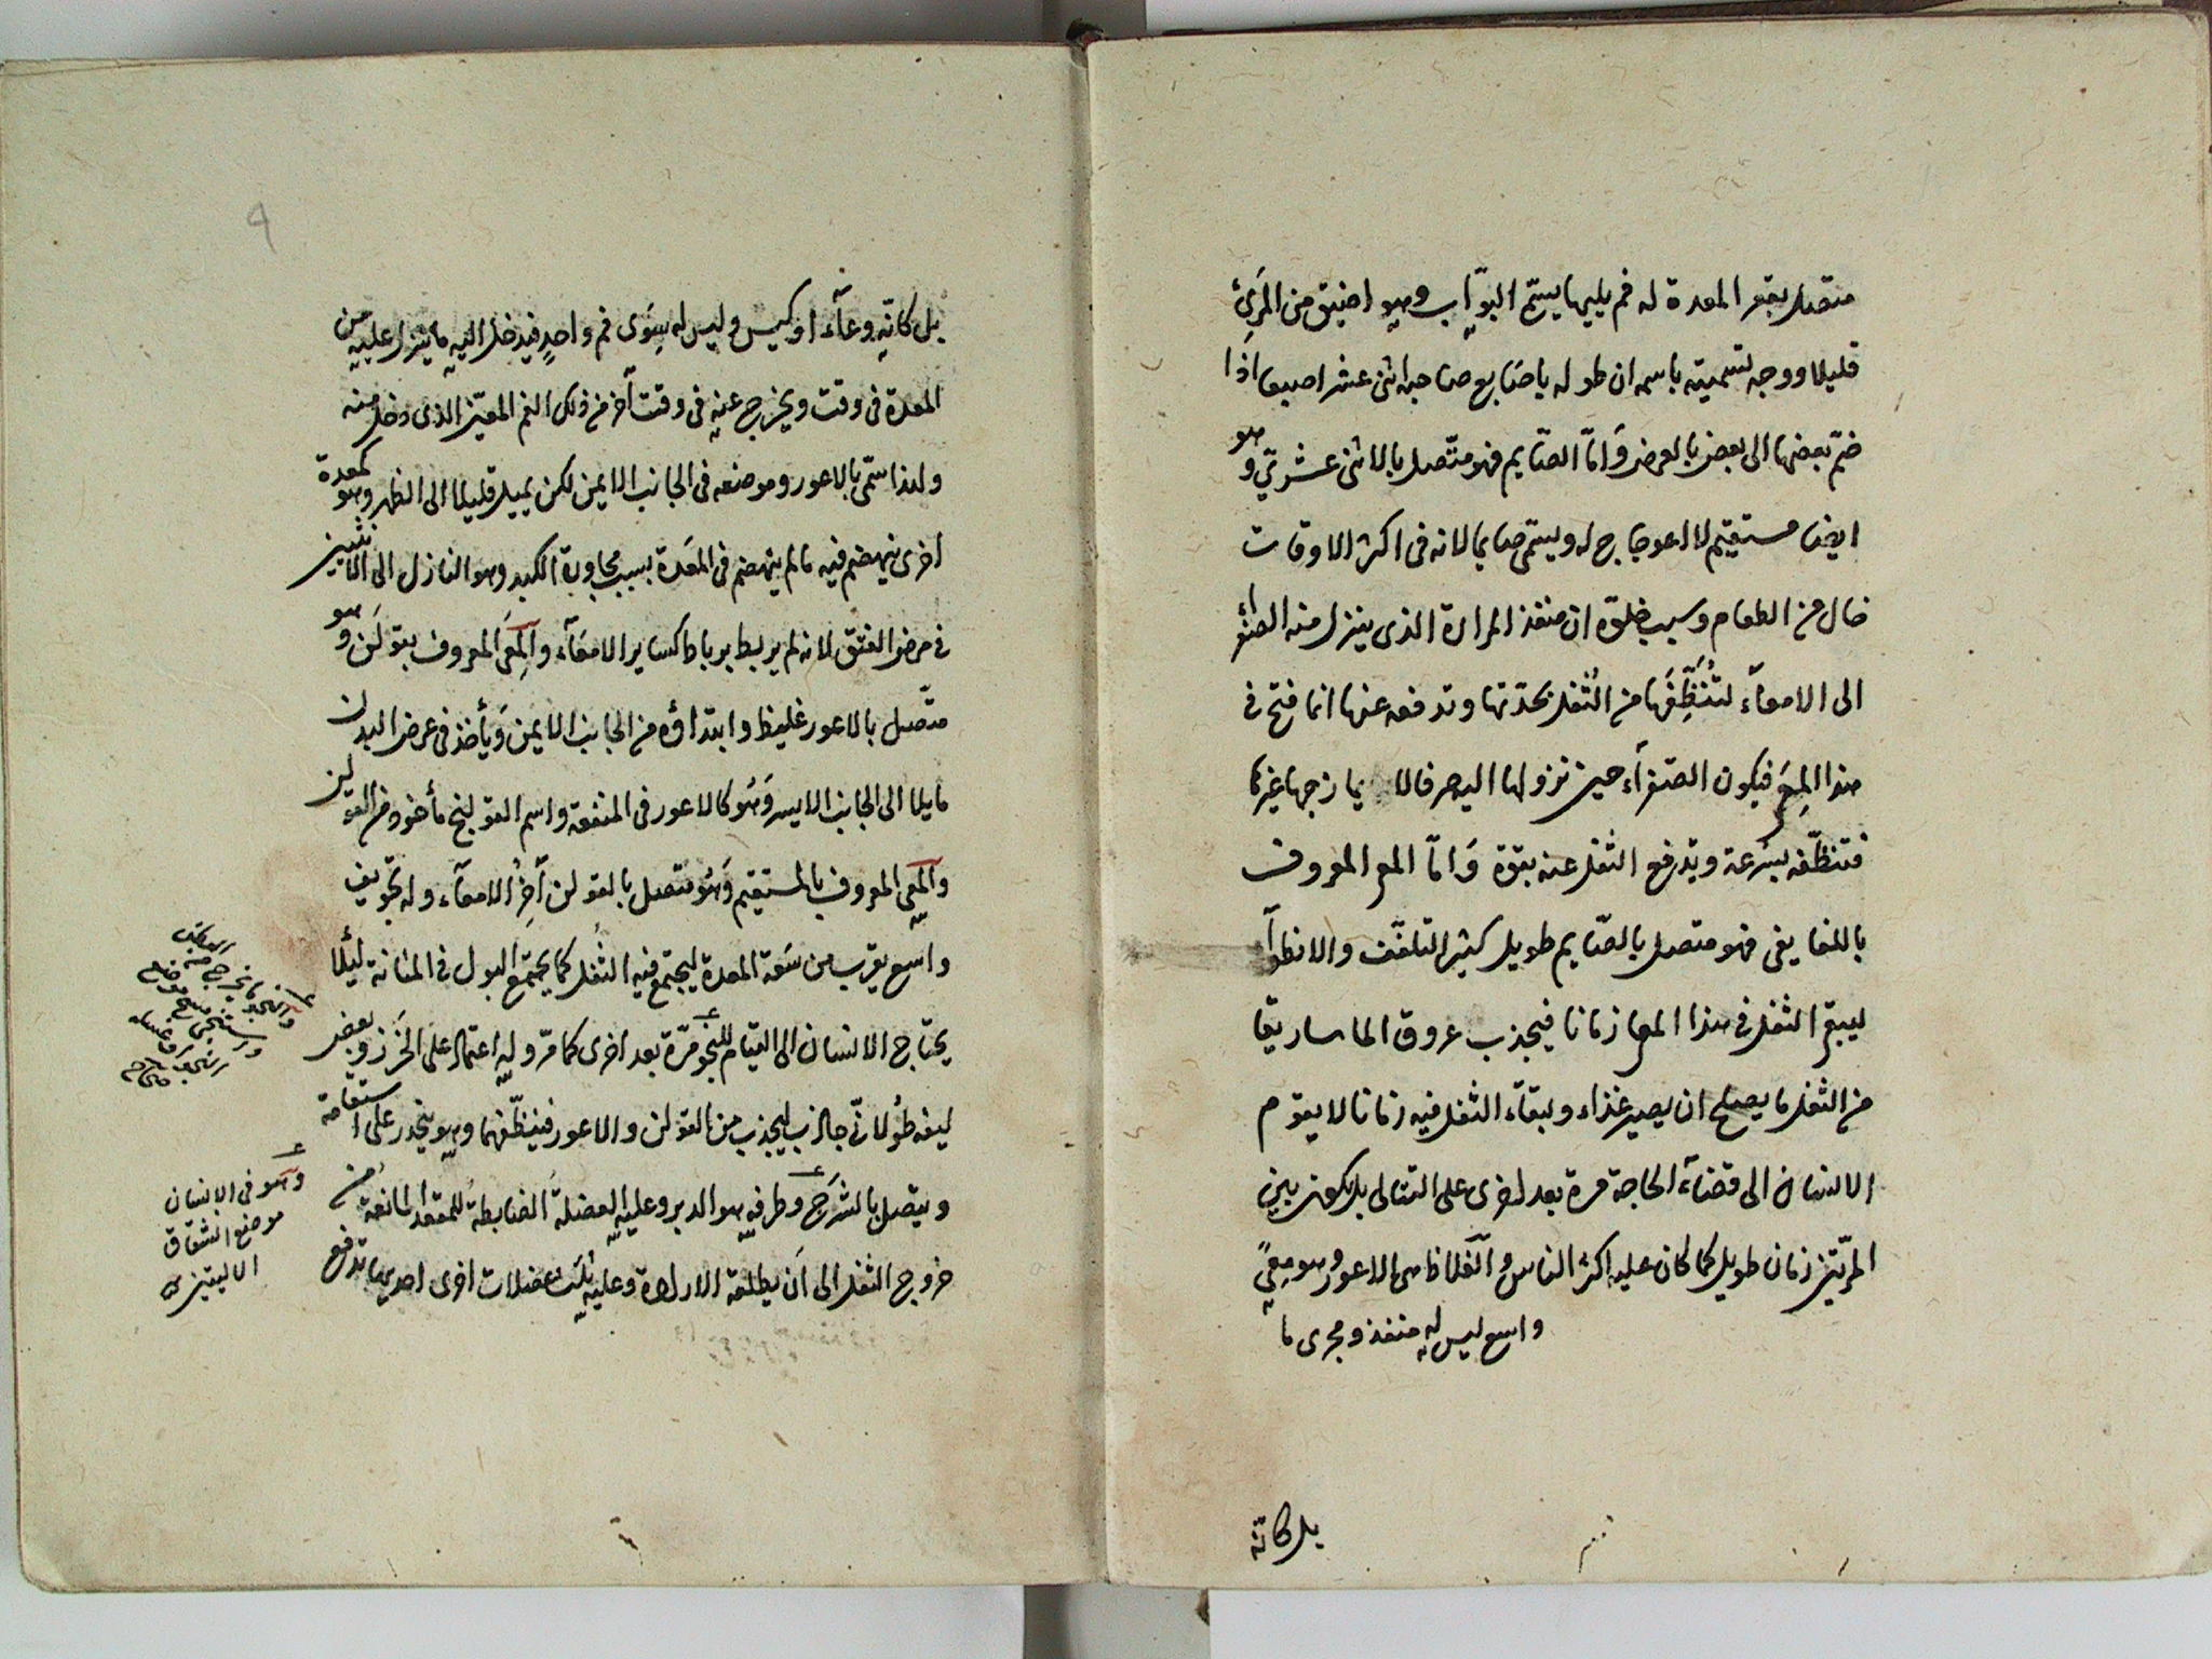 متصل بقعر المعدة له فم يليها يسمّى البوّاب وهو اضيق من المَرِئ
قليلا ووجه تسميته باسمه ان طوله باصَابع صاحبه اثنى عشر اصبعا اذا
ضمّ بعضها الى بعض بالعرض وَامّا الصّايم فهو متّصل بالاثنى عشرىّ وهو
ايضا مستقيم لا اعوجاج له ويسمّى صايما لانه فى اكثر الاوقات
خال من الطعام وسبب خلوّه ان منفذ المرارة الذى ينزل منه الصفرا
الى الامعآء لتُنَظِّفَها من الثُفل بحدّتها وتدفعه عنها انما فتح فى
هذا المِعَى فيكون الصّفرآء حين نزولها اليه صرفا لا يمازجها غيرها
فتنظّفه بسُرعة وتدفع الثفل عنه بقوّة وَامّا المعى المعروف
باللفايفى فهو متصل بالصّايم طويل كثير التلفّف والانطوآ
ليبقى الثفل فى هذا المعا زمانا فيجذب عروق الماساريقا
من الثفل ما يصلح ان يصير غذاء ولبقآء الثفل فيه زمانا لا يقوم
الانسان الى قضآء الحاجة مرة بعد اخرى على التتالى بل يكون بين
المرّتين زمان طويل كما كان عليه اكثر الناس والغلاظ هى الاعور وهو مِعًى
واسع ليس له منفذ ومجرى ما
بل كانّه
بل كانّه وعآء او كيس وليس له سِوَى فم واحدٍ فيدخل اليه ما ينزل عليه من
المعدة فى وقت ويخرج عنه فى وقت آخر من ذلك الفم المعيّن الذى دخل منه
ولهذا سمّى بالاعور وموضعه فى الجانب الايمن لكن يميل قليلا الى الظهر وهو كمعدة
اخرى ينهضم فيه ما لم ينهضم فى المعَدة بسبب مجاورة الكبد وهو النازل الى الانثيين
فى مرض الفتق لانه لم يربط برباط كساير الامعَآء وَالمِعَى المعروف بقولَن وهو
متّصل بالاعور غليظ وابتداؤه من الجانب الايمن وَيأخذ فى عرض البدن
مايلا الى الجانب الايسر وَهُو كالاعور فى المنفعة واسم القولنج مأخوذ من القولن
والمِعى المعروف بالمستقيم وَهُو متصل بالقولن آخِرُ الامعآء وله تجويف
واسع يقرب من سَعَة المعدة ليجتمع فيه الثُفل كما يجتمع البول فى المثانة لئلا
يحتاج الانسان الى القيام للنجو مرّة بعد اخرى كما مرّ وله اعتماد على الخَرَز وبعض
ليفه طُولانىّ جاذب ليجذب من القولن والاعور فينظّفهما وهو ينحدر على استقامة
ويتصل بالشرَج وطرفه هو الدبر وعليه العضلةُ الضابطةُ للمقعد المانعة من
خروج الثفل الى ان يطلقه الارادة وعليه ثلث عضلات اخرى احديها تدفع
وَالنجو ما يخرج منه
وَهُو فى الانسان
موضع الشقاق